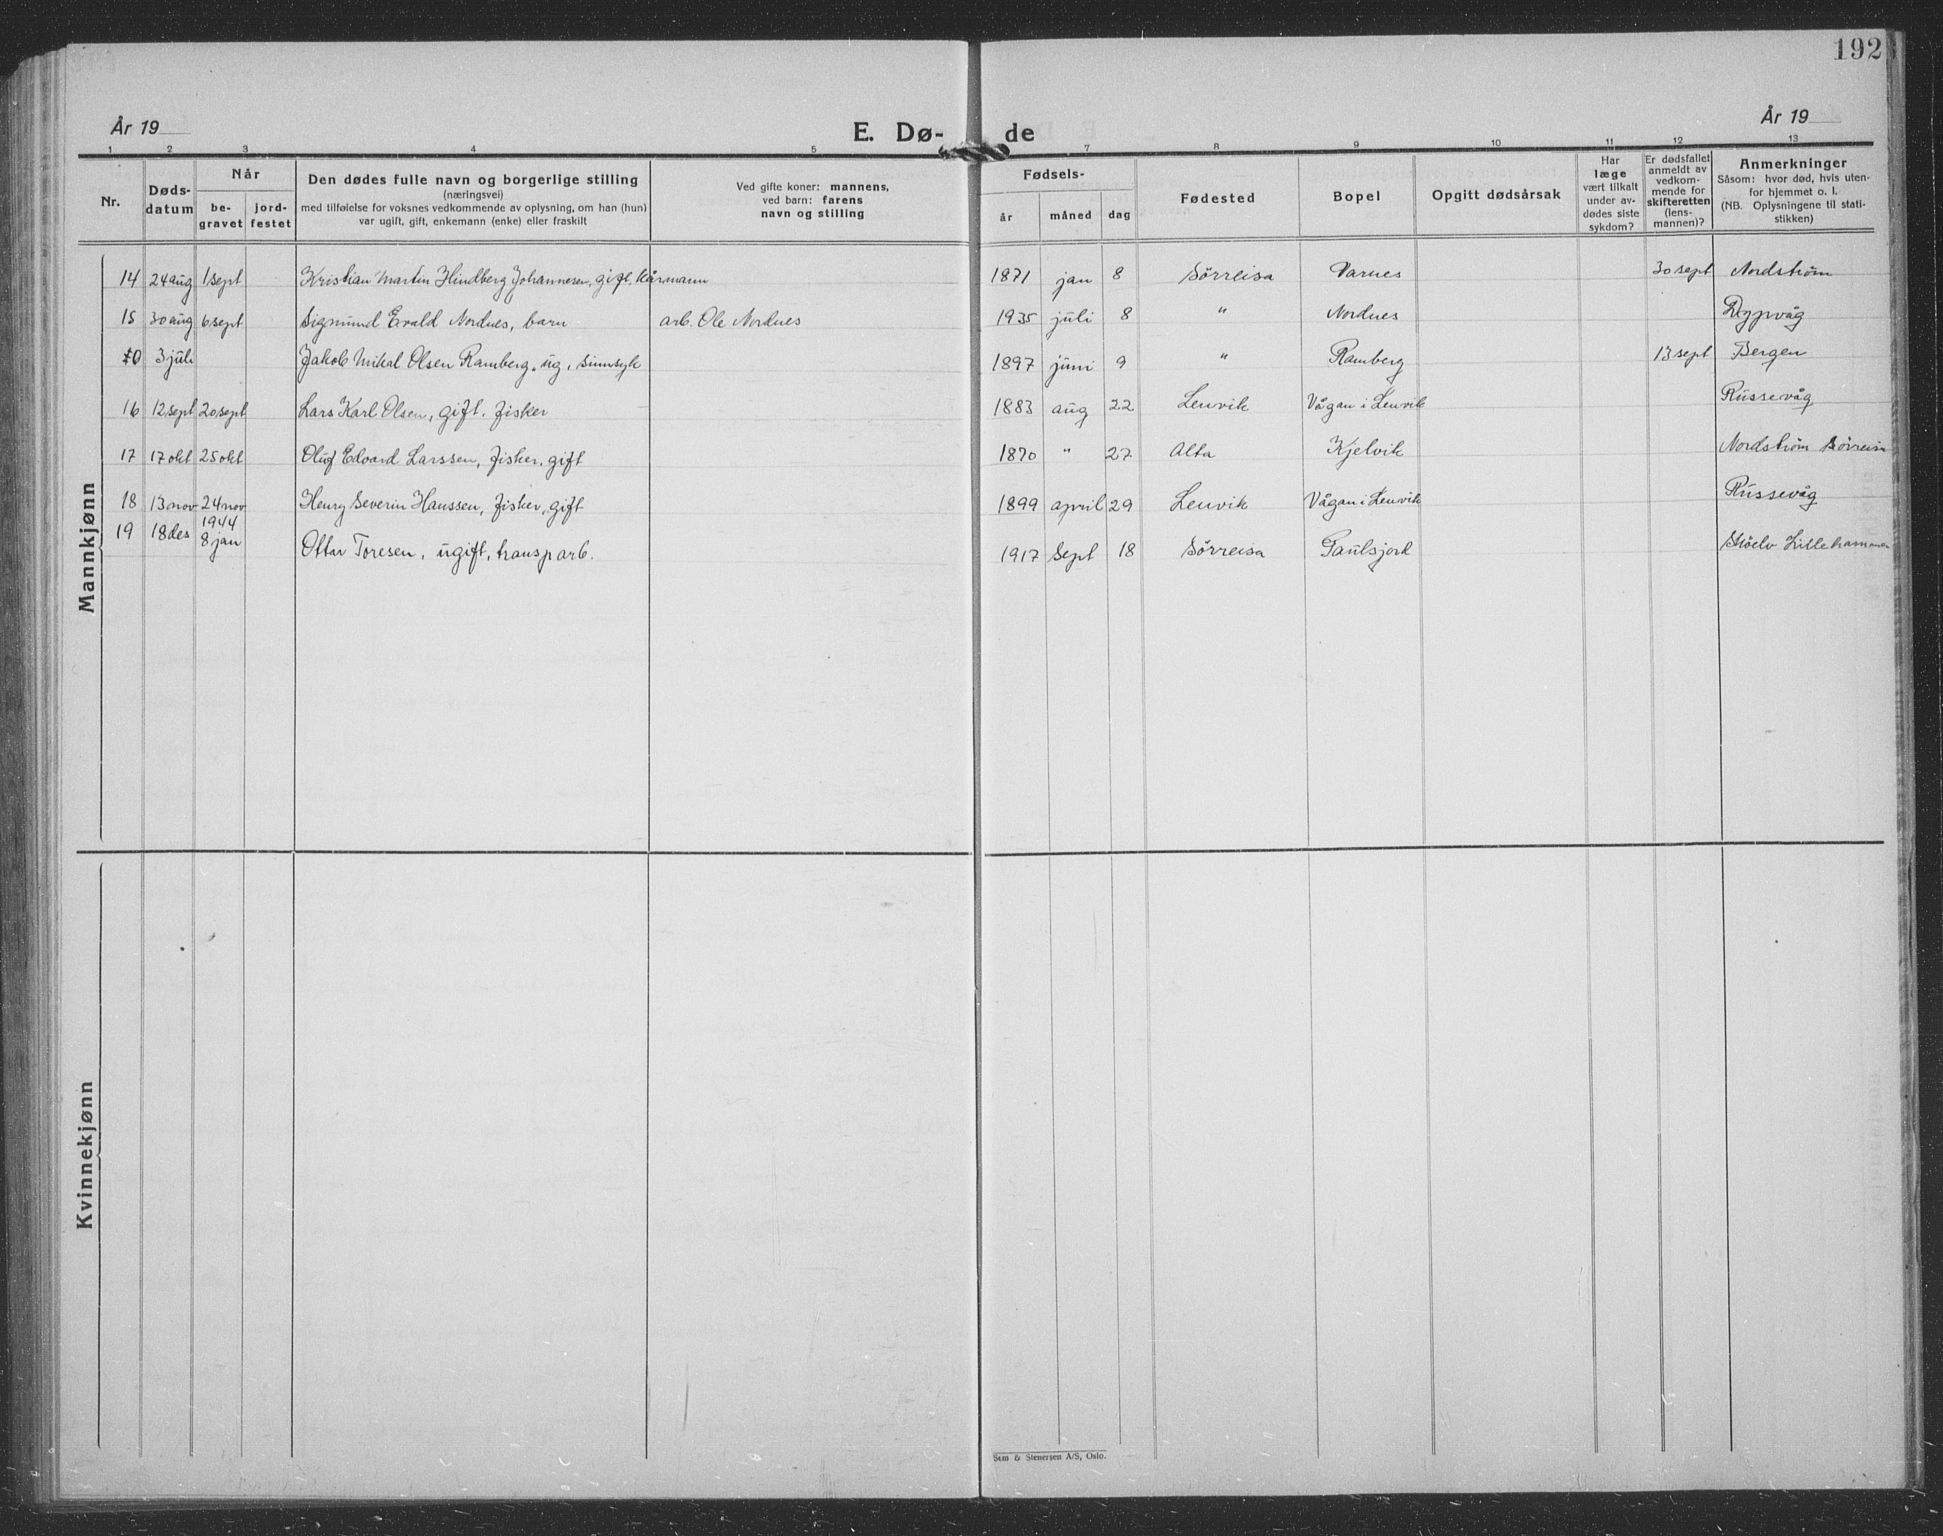 192
År 19
E. Dø-
de
År 19
1 2 3 4 5 7 8 9 10 11 12 13
Nr.
Døds-
datum
Når
be-
gravet
jord-
festet
Den dødes fulle navn og borgerlige stilling
(næringsvei)
med tilføielse for voksnes vedkommende av oplysning, om han (hun)
var ugift, gift, enkemann (enke) eller fraskilt
Ved gifte koner: mannens,
ved barn: farens
navn og stilling
Fødsels-
år
måned
dag
Fødested
Bopel
Opgitt dødsårsak
Har
læge
vært tilkalt
under av-
dødes siste
sykdom?
Er dødsfallet
anmeldt av
vedkom-
mende for
skifteretten
(lens-
mannen)?
Anmerkninger
Såsom: hvor død, hvis uten-
for hjemmet o. l.
(NB. Oplysningene til stati-
stikken)
Mannkjønn
14 24 aug 1 sept Kristian Martin Hindberg Johannesen, gift. kårmann 1871 jan 8 Sørreisa Varnes 30 sept Nordstrøm
15 30 aug 6 sept Sigmund Evald Nordnes, barn arb. Ole Nordnes 1935 juli 8 " Nordnes Dypvåg
3 juli Jakob Mikal Olsen Ramberg, ug, sinnsyk 1897 juni 9 " Ramberg 13 sept Bergen
16 12 sept 20 sept Lars Karl Olsen, gift. fisker 1883 aug 22 Lenvik Vågan i Lenvik Russevåg
17 17 okt 25 okt Oluf Edvard Larssen, fisker, gift 1870 " 27 Alta Kjelvik Nordstrøm Sørreisa
18 13 nov 24 nov Henry Severin Hanssen, fisker, gift 1899 april 29 Lenvik Vågan i Lenvik Russevåg
1944
19 18 des 8 jan Ottar Toresen, ugift, transp arb. 1917 Sept 18 Sørreisa Lillehammer
Kvinnekjønn
Sem & Stenersen A/S, Oslo.